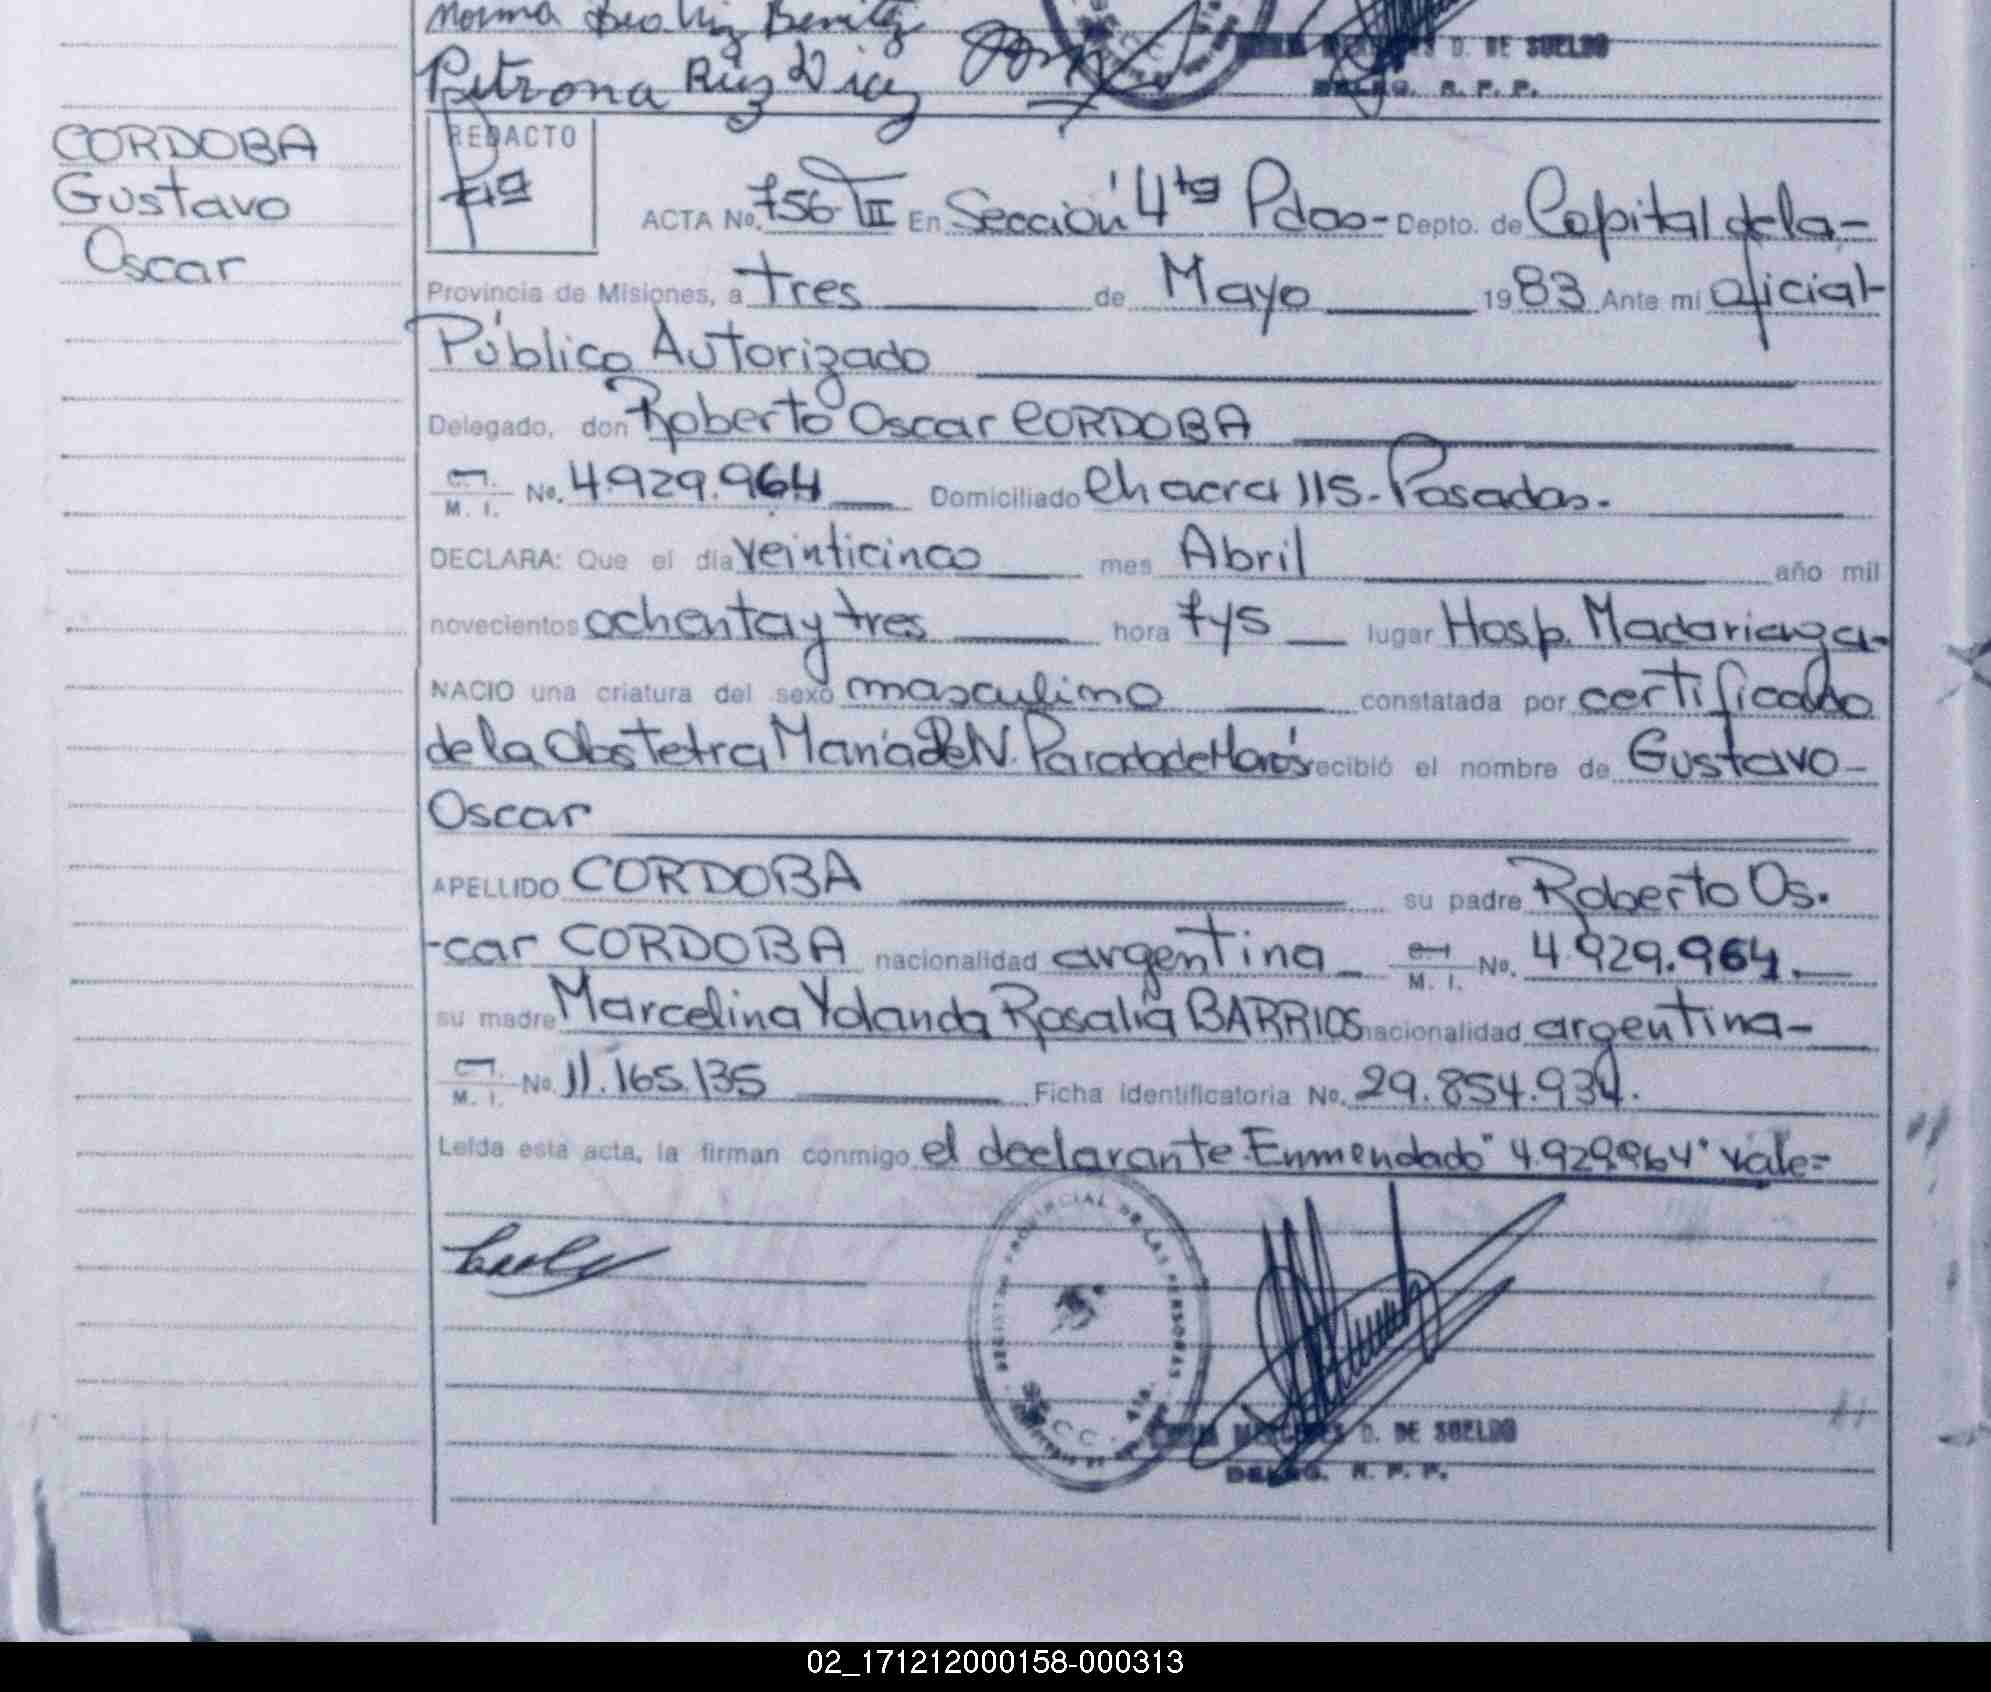 Norma Beatriz Benitez
Petrona Ruiz Diaz
D. DE SUELDO
DELEG. R. P. P.
CORDOBA
Gustavo
Oscar
REDACTO
ACTA No. 756 TII En Sección 4ta Pdas- Depto. de Capital de la-
Provincia de Misiones, a tres de Mayo 1983 Ante mi oficial-
Público Autorizado
Delegado, don Roberto Oscar CORDOBA
M. I. No. 4.929.964 Domiciliado Chacra 115.-Posadas.
DECLARA: Que el día veinticinco mes Abril año mil
novecientos ochenta y tres hora 7 y 5 lugar Hosp. Madariaga-
NACIO una criatura del sexo masculino constatada por certificado
de la Obstetra María N. Parada de recibió el nombre de Gustavo-
Oscar
APELLIDO CORDOBA su padre Roberto Os.
-car CORDOBA nacionalidad argentina M. I. No. 4.929.964.
su madre Marcelina Yolanda Rosalia BARRIOS nacionalidad argentina-
M. I. No. 11.165.135 Ficha identificatoria No. 29.854.934.
Leída esta acta, la firman conmigo el declarante. Enmendado "4.929.964" vale=
REGISTRO PROVINCIAL DE LAS PERSONAS
MERCEDES D. DE SUELDO
DELEG. R. P. P.
02_171212000158-000313